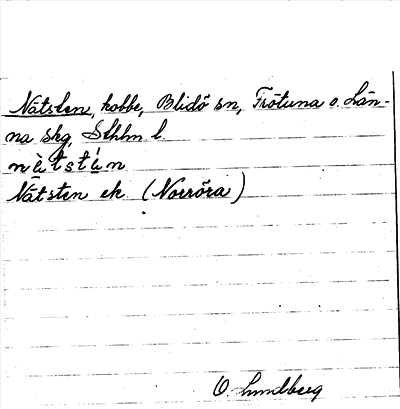 Nätsten, kobbe, Blidö sn, Frötuna o. Län-
na skg, Sthlm l.
nä̀tstén
Nätsten ek. (Norröra)
O. Lundberg